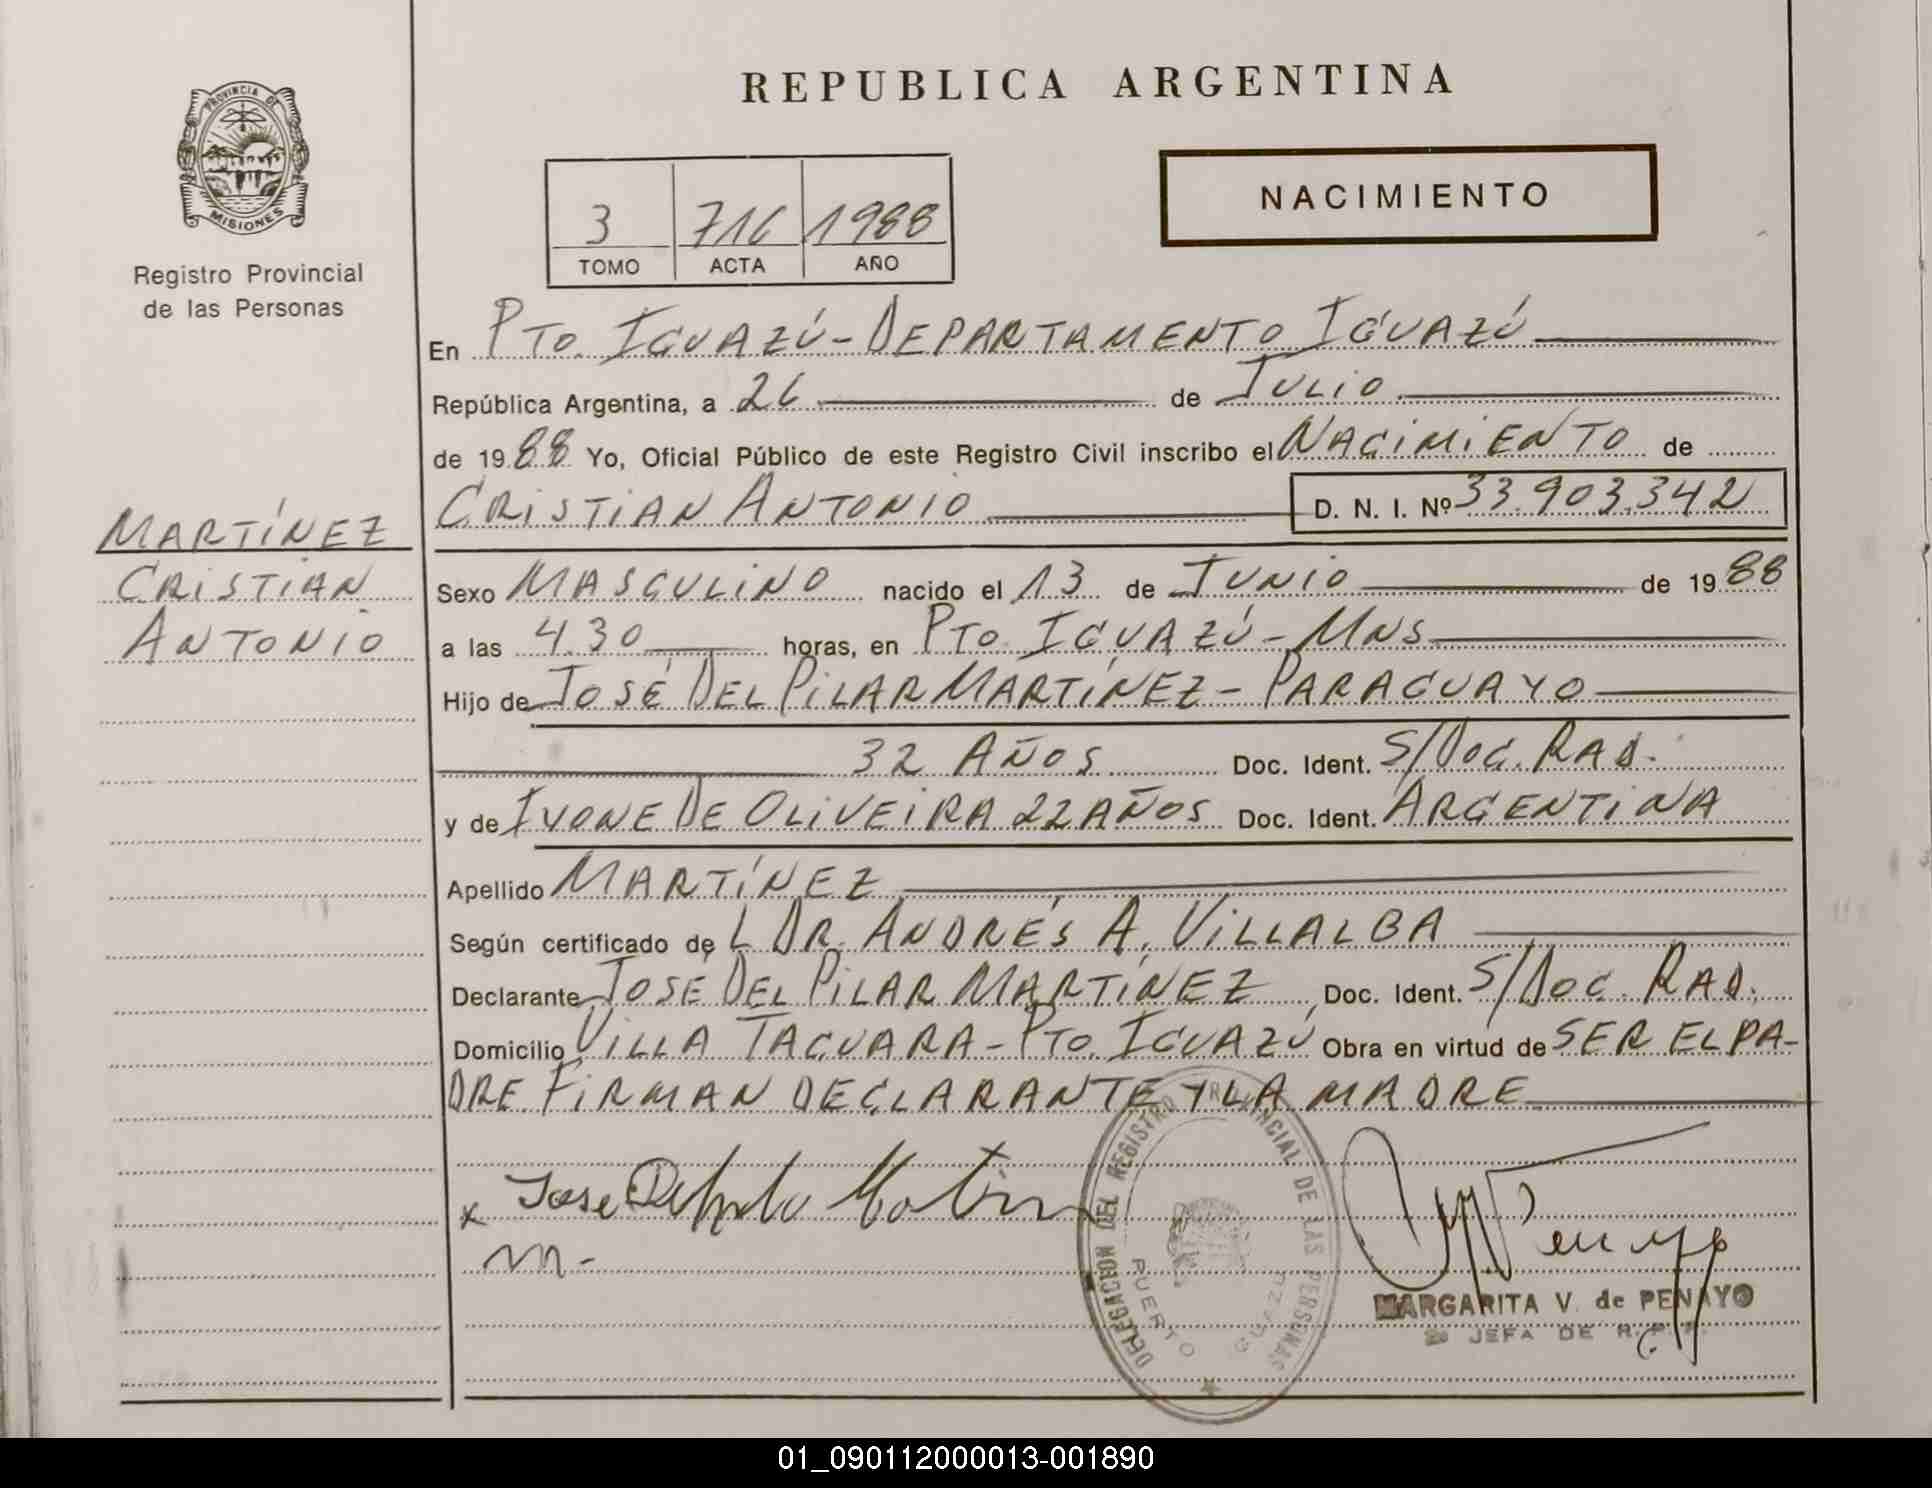 REPUBLICA ARGENTINA
PROVINCIA DE
MISIONES
Registro Provincial
de las Personas
NACIMIENTO
3 716 1988
TOMO ACTA AÑO
En PTO. IGUAZÚ - DEPARTAMENTO IGUAZÚ
República Argentina, a 26 de JULIO
de 1988 Yo, Oficial Público de este Registro Civil inscribo el NACIMIENTO de
CRISTIAN ANTONIO D. N. I. Nº 33.903.342
MARTÍNEZ
CRISTIAN
ANTONIO
Sexo MASCULINO nacido el 13 de JUNIO de 1988
a las 4.30 horas, en PTO. IGUAZÚ - MNS
Hijo de JOSÉ DEL PILAR MARTÍNEZ - PARAGUAYO
32 AÑOS Doc. Ident. S/DOC. RAD.
y de IVONE DE OLIVEIRA 22 AÑOS Doc. Ident. ARGENTINA
Apellido MARTÍNEZ
Según certificado de L DR. ANDRÉS A. VILLALBA
Declarante JOSE DEL PILAR MARTÍNEZ Doc. Ident. S/DOC. RAD.
Domicilio VILLA TACUARA - PTO. IGUAZÚ Obra en virtud de SER EL PA-
DRE. FIRMAN DECLARANTE Y LA MADRE
x Jose Del
m-
DELEGACION DEL REGISTRO PROVINCIAL DE LAS PERSONAS
PUERTO IGUAZU
MARGARITA V. de PENAYO
2º JEFA DE R.P.P.
01_090112000013-001890